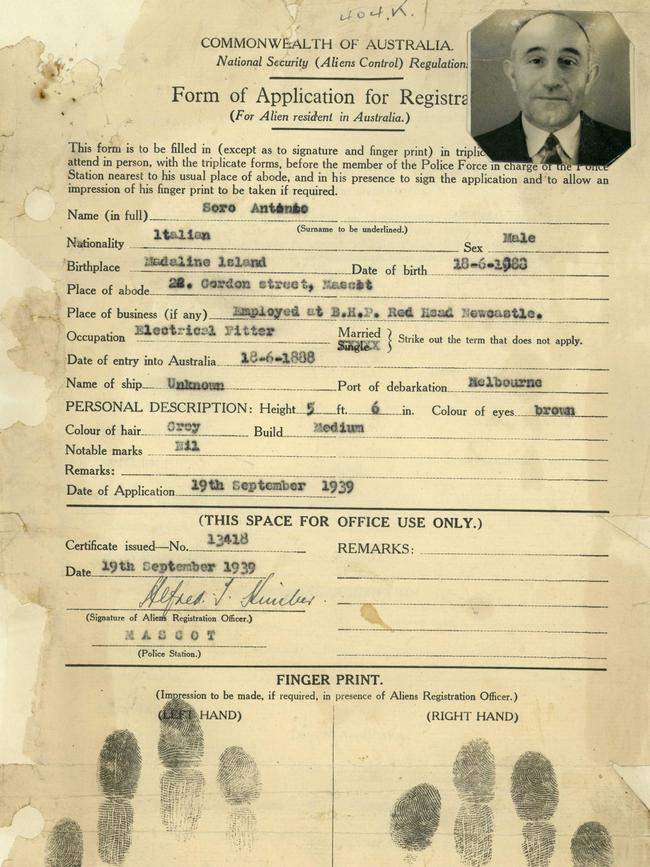 404.K.
COMMONWEALTH OF AUSTRALIA.
National Security (Aliens Control) Regulation
Form of Application for Registra
(For Alien resident in Australia.)
This form is to be filled in (except as to signature and finger print) in triplic
attend in person, with the triplicate forms, before the member of the Police Force in charge of the Police
Station nearest to his usual place of abode, and in his presence to sign the application and to allow an
impression of his finger print to be taken if required.
Name (in full) Soro Antonio
(Surname to be underlined.)
Nationality Italian Sex Male
Birthplace Madaline Island Date of birth 18-6-1888
Place of abode 22. Gordon street, Mascot
Place of business (if any) Employed at B.H.P. Red Head Newcastle.
Occupation Electrical Fitter Married Single Strike out the term that does not apply.
Date of entry into Australia 18-6-1888
Name of ship Unknown Port of debarkation Melbourne
PERSONAL DESCRIPTION: Height 5 ft. 6 in. Colour of eyes brown
Colour of hair Grey Build Medium
Notable marks Nil
Remarks:
Date of Application 19th September 1939
(THIS SPACE FOR OFFICE USE ONLY.)
Certificate issued—No. 13418 REMARKS:
Date 19th September 1939
Alfred J. Kimber.
(Signature of Aliens Registration Officer.)
MASCOT
(Police Station.)
FINGER PRINT.
(Impression to be made, if required, in presence of Aliens Registration Officer.)
(LEFT HAND) (RIGHT HAND)